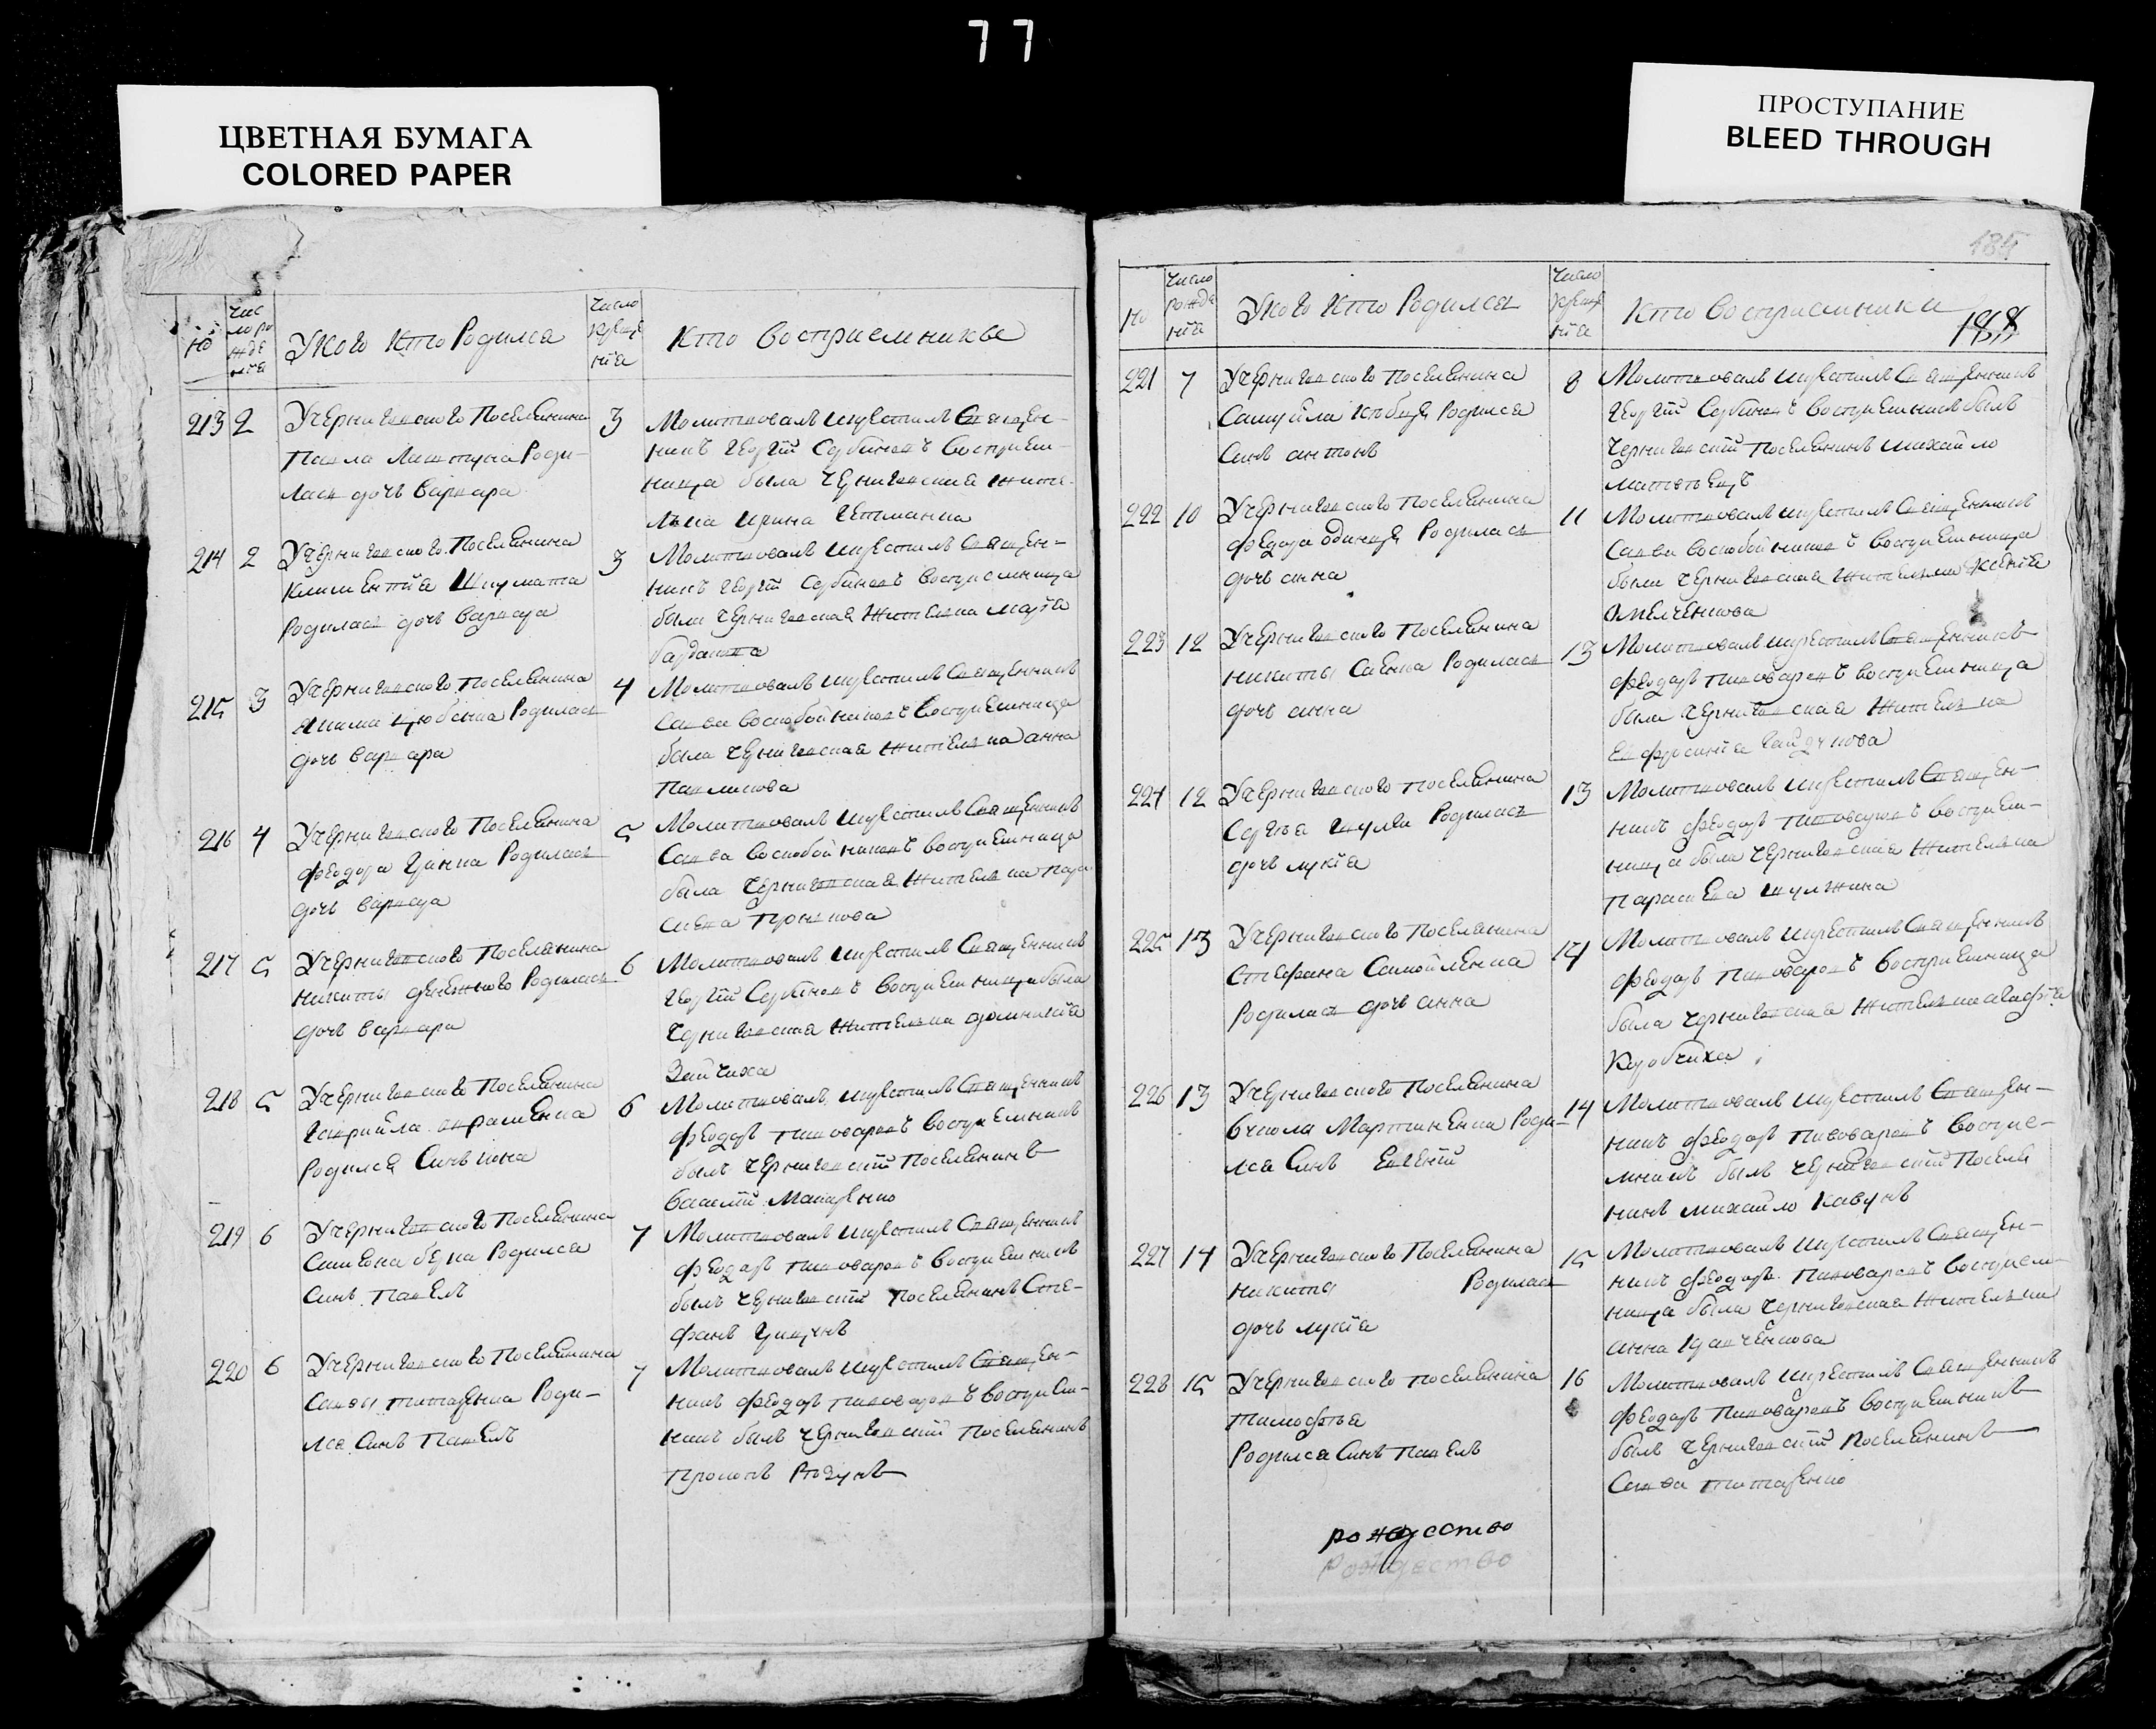 77
ЦВЕТНАЯ БУМАГА
COLORED PAPER
ПРОСТУПАНИЕ
BLEED THROUGH
185
188
но
Чис
ло ро
жде
нiя
У кого кто Родился
Число
крещ
нiя
Кто восприемники
213 2
У Черниговского Поселянина
Павла Лаштуна Роди-
лась дочь варвара
3
Молитвовалъ икрестилъ Священ-
никъ Георгiй Сербиновъ восприем-
ница была Черниговская жите-
лька ирина Гетманка
214 2
У Черниговского Поселянина
Климентiя Шкумата
Родилась дочь варвара
3
Молитвовалъ икрестилъ Священ-
никъ Георгiй Сербиновъ восприемница
была Черниговская жителька марfа
215 3
У Черниговского Поселянина
Якима Цюбенка Родилась
дочь варвара
4
Молитвовалъ икрестилъ Священникъ
Савва воскобойниковъ восприемница
была Черниговская жителька анна
Павликова
216 4
У Черниговского Поселянина
феодора Родилась
дочь варвара
5
Молитвовалъ икрестилъ Священникъ
Савва воскобойниковъ восприемница
была Черниговская жителька пара
скева
217 5
У Черниговского Поселянина
никиты денежного Родилась
дочь варвара
6
Молитвовалъ икрестилъ Священникъ
Георгiй Сербиновъ восприемница была
Черниговская жителька домникiя
Зайчиха
218 5
У Черниговского Поселянина
Гаврийла авраменка
Родился Синъ иона
6
Молитвовалъ икрестилъ Священникъ
феодоръ пивоваровъ восприемникъ
былъ Черниговскiй Поселянинъ
василiй Мащенко
219 6
У Черниговского Поселянина
Симеона Родился
Синъ павелъ
7
Молитвовалъ икрестилъ Священникъ
феодоръ пивоваровъ восприемникъ
былъ Черниговскiй Поселянинъ Сте-
фанъ
220 6
У Черниговского Поселянина
Саввы титаренка Роди-
лся Синъ Павелъ
7
Молитвовалъ икрестилъ Священ-
никъ феодоръ пивоваровъ восприем-
никъ былъ Черниговскiй Поселянинъ
прокопъ
но
Число
рожде
нiя
У кого кто Родился
Число
крещ
нiя
Кто восприемники
221 7
У Черниговского Поселянина
Самуйла Родился
Синъ антонъ
8
Молитвовалъ икрестилъ Священникъ
Георгiй Сербиновъ восприемникъ былъ
Черниговскiй Поселянинъ михайло
222 10
У Черниговского Поселянина
феодора одинца Родилась
дочь анна
11
Молитвовалъ икрестилъ Священникъ
Савва воскобойниковъ восприемница
была Черниговская жителька Ксенiя
Омелченкова
223 12
У Черниговского Поселянина
никиты Саенка Родилась
дочь анна
13
Молитвовалъ икрестилъ Священникъ
феодоръ пивоваровъ восприемница
была Черниговская жителька
Евфросинiя Гайдукова
224 12
У Черниговского Поселянина
Сергѣя Шулги Родилась
дочь лукiя
13
Молитвовалъ икрестилъ Священ-
никъ феодоръ пивоваровъ восприем-
ница была Черниговская жителька
параскева шулжина
225 13
У Черниговского Поселянина
Стефана Самойленка
Родилась дочь анна
14
Молитвовалъ икрестилъ Священникъ
феодоръ пивоваровъ восприемница
была Черниговская жителька агафiя
Коробчиха
226 13
У Черниговского Поселянина
вукола Мартиненка Роди-
лся Синъ Евгенiй
14
Молитвовалъ икрестилъ Священ-
никъ феодоръ пивоваровъ восприе-
мникъ былъ Черниговскiй Поселя
нинъ михайло кавунъ
227 14
У Черниговского Поселянина
никиты Родилась
дочь лукiя
15
Молитвовалъ икрестилъ Священ-
никъ феодоръ пивоваровъ восприем-
ница была Черниговская жителька
анна
228 15
У Черниговского Поселянина
тимофѣя
Родился Синъ Павелъ
16
Молитвовалъ икрестилъ Священникъ
феодоръ пивоваровъ восприемникъ
былъ Черниговскiй Поселянинъ
Савва титаренко
рождество
Рождество